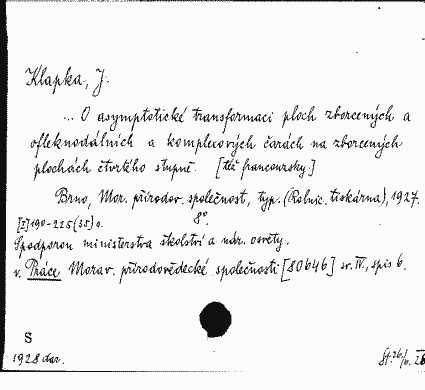 Klapka, J.
... O asymptotické transformaci ploch zborcených a
ofleknodálních a komplexových čarách na zborcených
plochách čtvrtého stupně. [též francouzsky.]
Brno, Mor. přírodov. společnost, typ. (Rolnic. tiskárna), 1927.
8°.
[I] 190-225 (35) s.
S podporou ministerstva školství a nár. osvěty.
v. Práce Morav. přírodovědecké společnosti [80646] sv. IV, spis 6.
S
1928 dar.